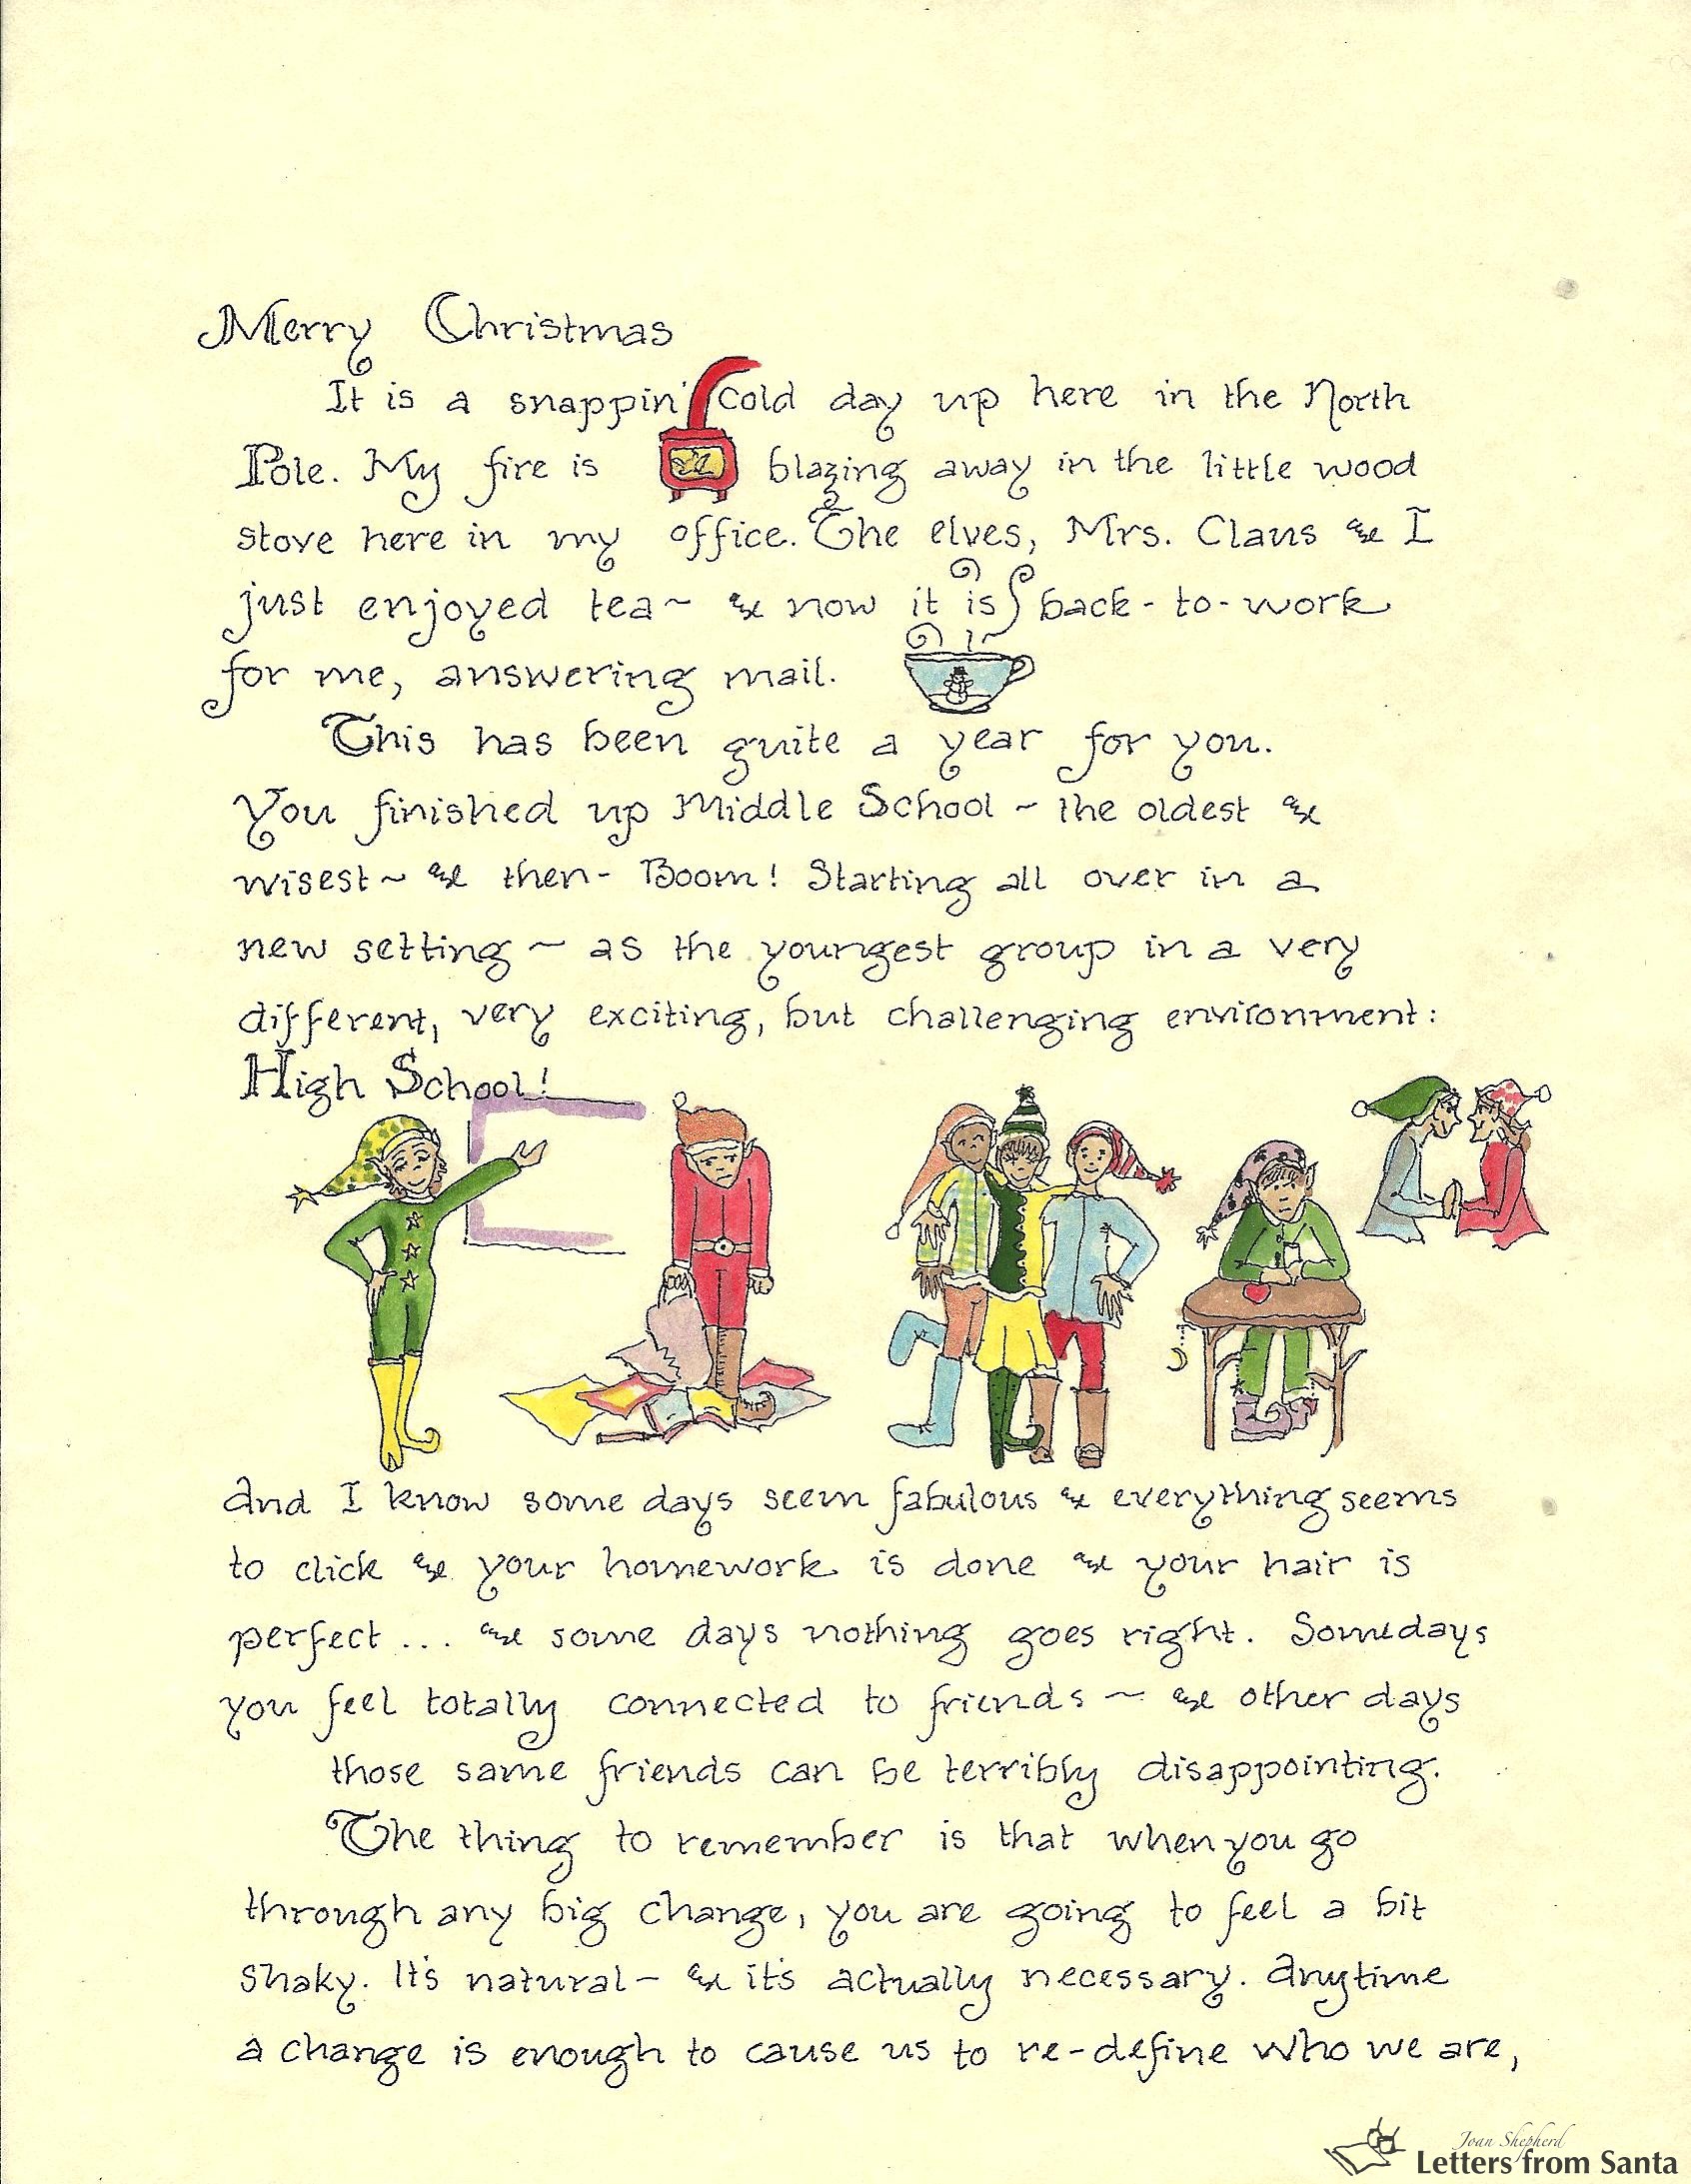 Merry Christmas
It is a snappin' cold day up here in the North
Pole. My fire is blazing away in the little wood
stove here in my office. The elves, Mrs. Claus & I
just enjoyed tea ~ & now it is back-to-work
for me, answering mail.
This has been quite a year for you.
You finished up Middle School ~ the oldest &
wisest ~ & then - Boom! Starting all over in a
new setting ~ as the youngest group in a very
different, very exciting, but challenging environment:
High School!
And I know some days seem fabulous & everything seems
to click & your homework is done & your hair is
perfect ... & some days nothing goes right. Somedays
you feel totally connected to friends ~ & other days
those same friends can be terribly disappointing.
The thing to remember is that when you go
through any big change, you are going to feel a bit
shaky. It's natural - & it's actually necessary. Anytime
a change is enough to cause us to re-define who we are,
Joan Shepherd
Letters from Santa